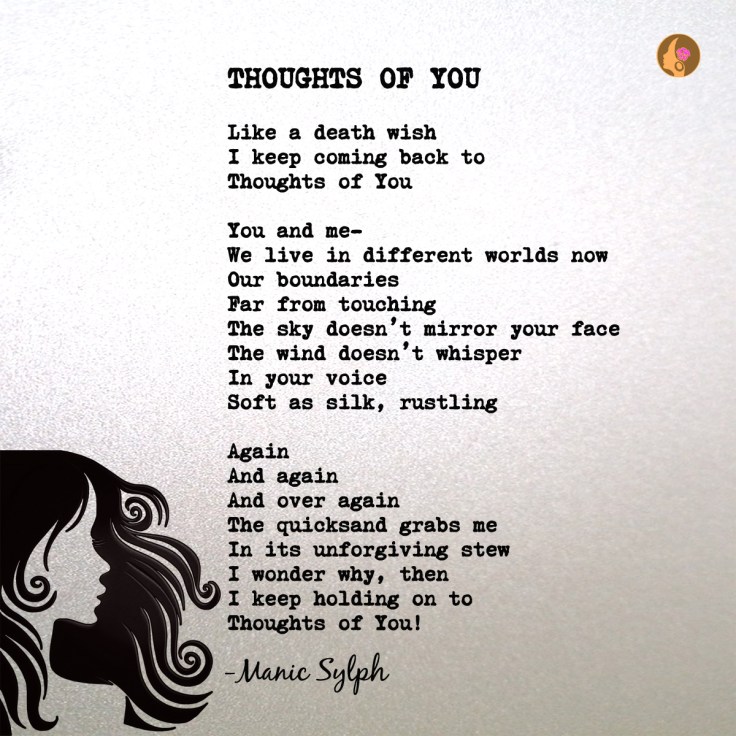 THOUGHTS OF YOU
Like a death wish
I keep coming back to
Thoughts of You
You and me-
We live in different worlds now
Our boundaries
Far from touching
The sky doesn't mirror your face
The wind doesn't whisper
In your voice
Soft as silk, rustling
Again
And again
And over again
The quicksand grabs me
In its unforgiving stew
I wonder why, then
I keep holding on to
Thoughts of You!
-Manic Sylph